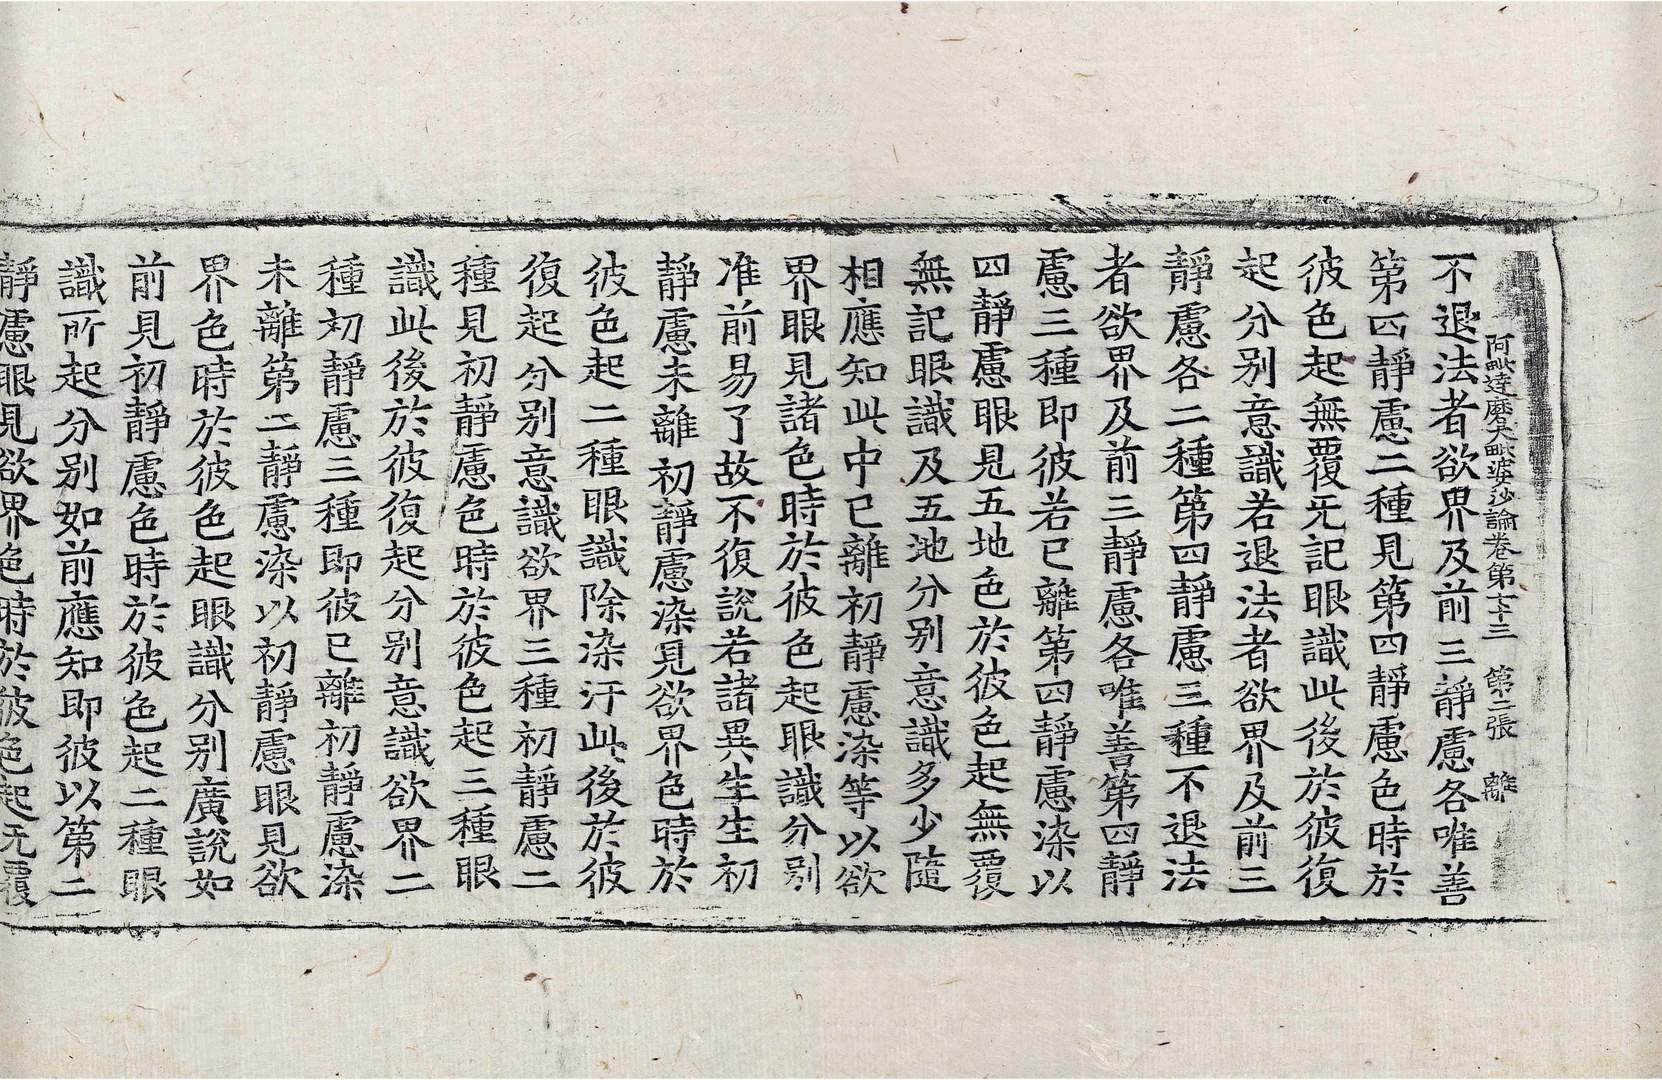 阿毗達磨大毗婆沙論卷第七十三 第二張 離
不退法者欲界及前三靜慮各唯善
第四靜慮二種見第四靜慮色時於
彼色起無覆无記眼識此後於彼復
起分别意識若退法者欲界及前三
靜慮各二種第四靜慮三種不退法
者欲界及前三靜慮各唯善第四靜
慮三種即彼若已離第四靜慮染以
四靜慮眼見五地色於彼色起無覆
無記眼識及五地分别意識多少隨
相應知此中已離初靜慮染等以欲
界眼見諸色時於彼色起眼識分别
准前易了故不復說若諸異生生初
靜慮未離初靜慮染見欲界色時於
彼色起二種眼識除染汙此後於彼
復起分别意識欲界三種初靜慮二
種見初靜慮色時於彼色起三種眼
識此後於彼復起分别意識欲界二
種初靜慮三種即彼已離初靜慮染
未離第二靜慮染以初靜慮眼見欲
界色時於彼色起眼識分别廣說如
前見初靜慮色時於彼色起二種眼
識所起分别如前應知即彼以第二
靜慮眼見欲界色時於彼色起无覆